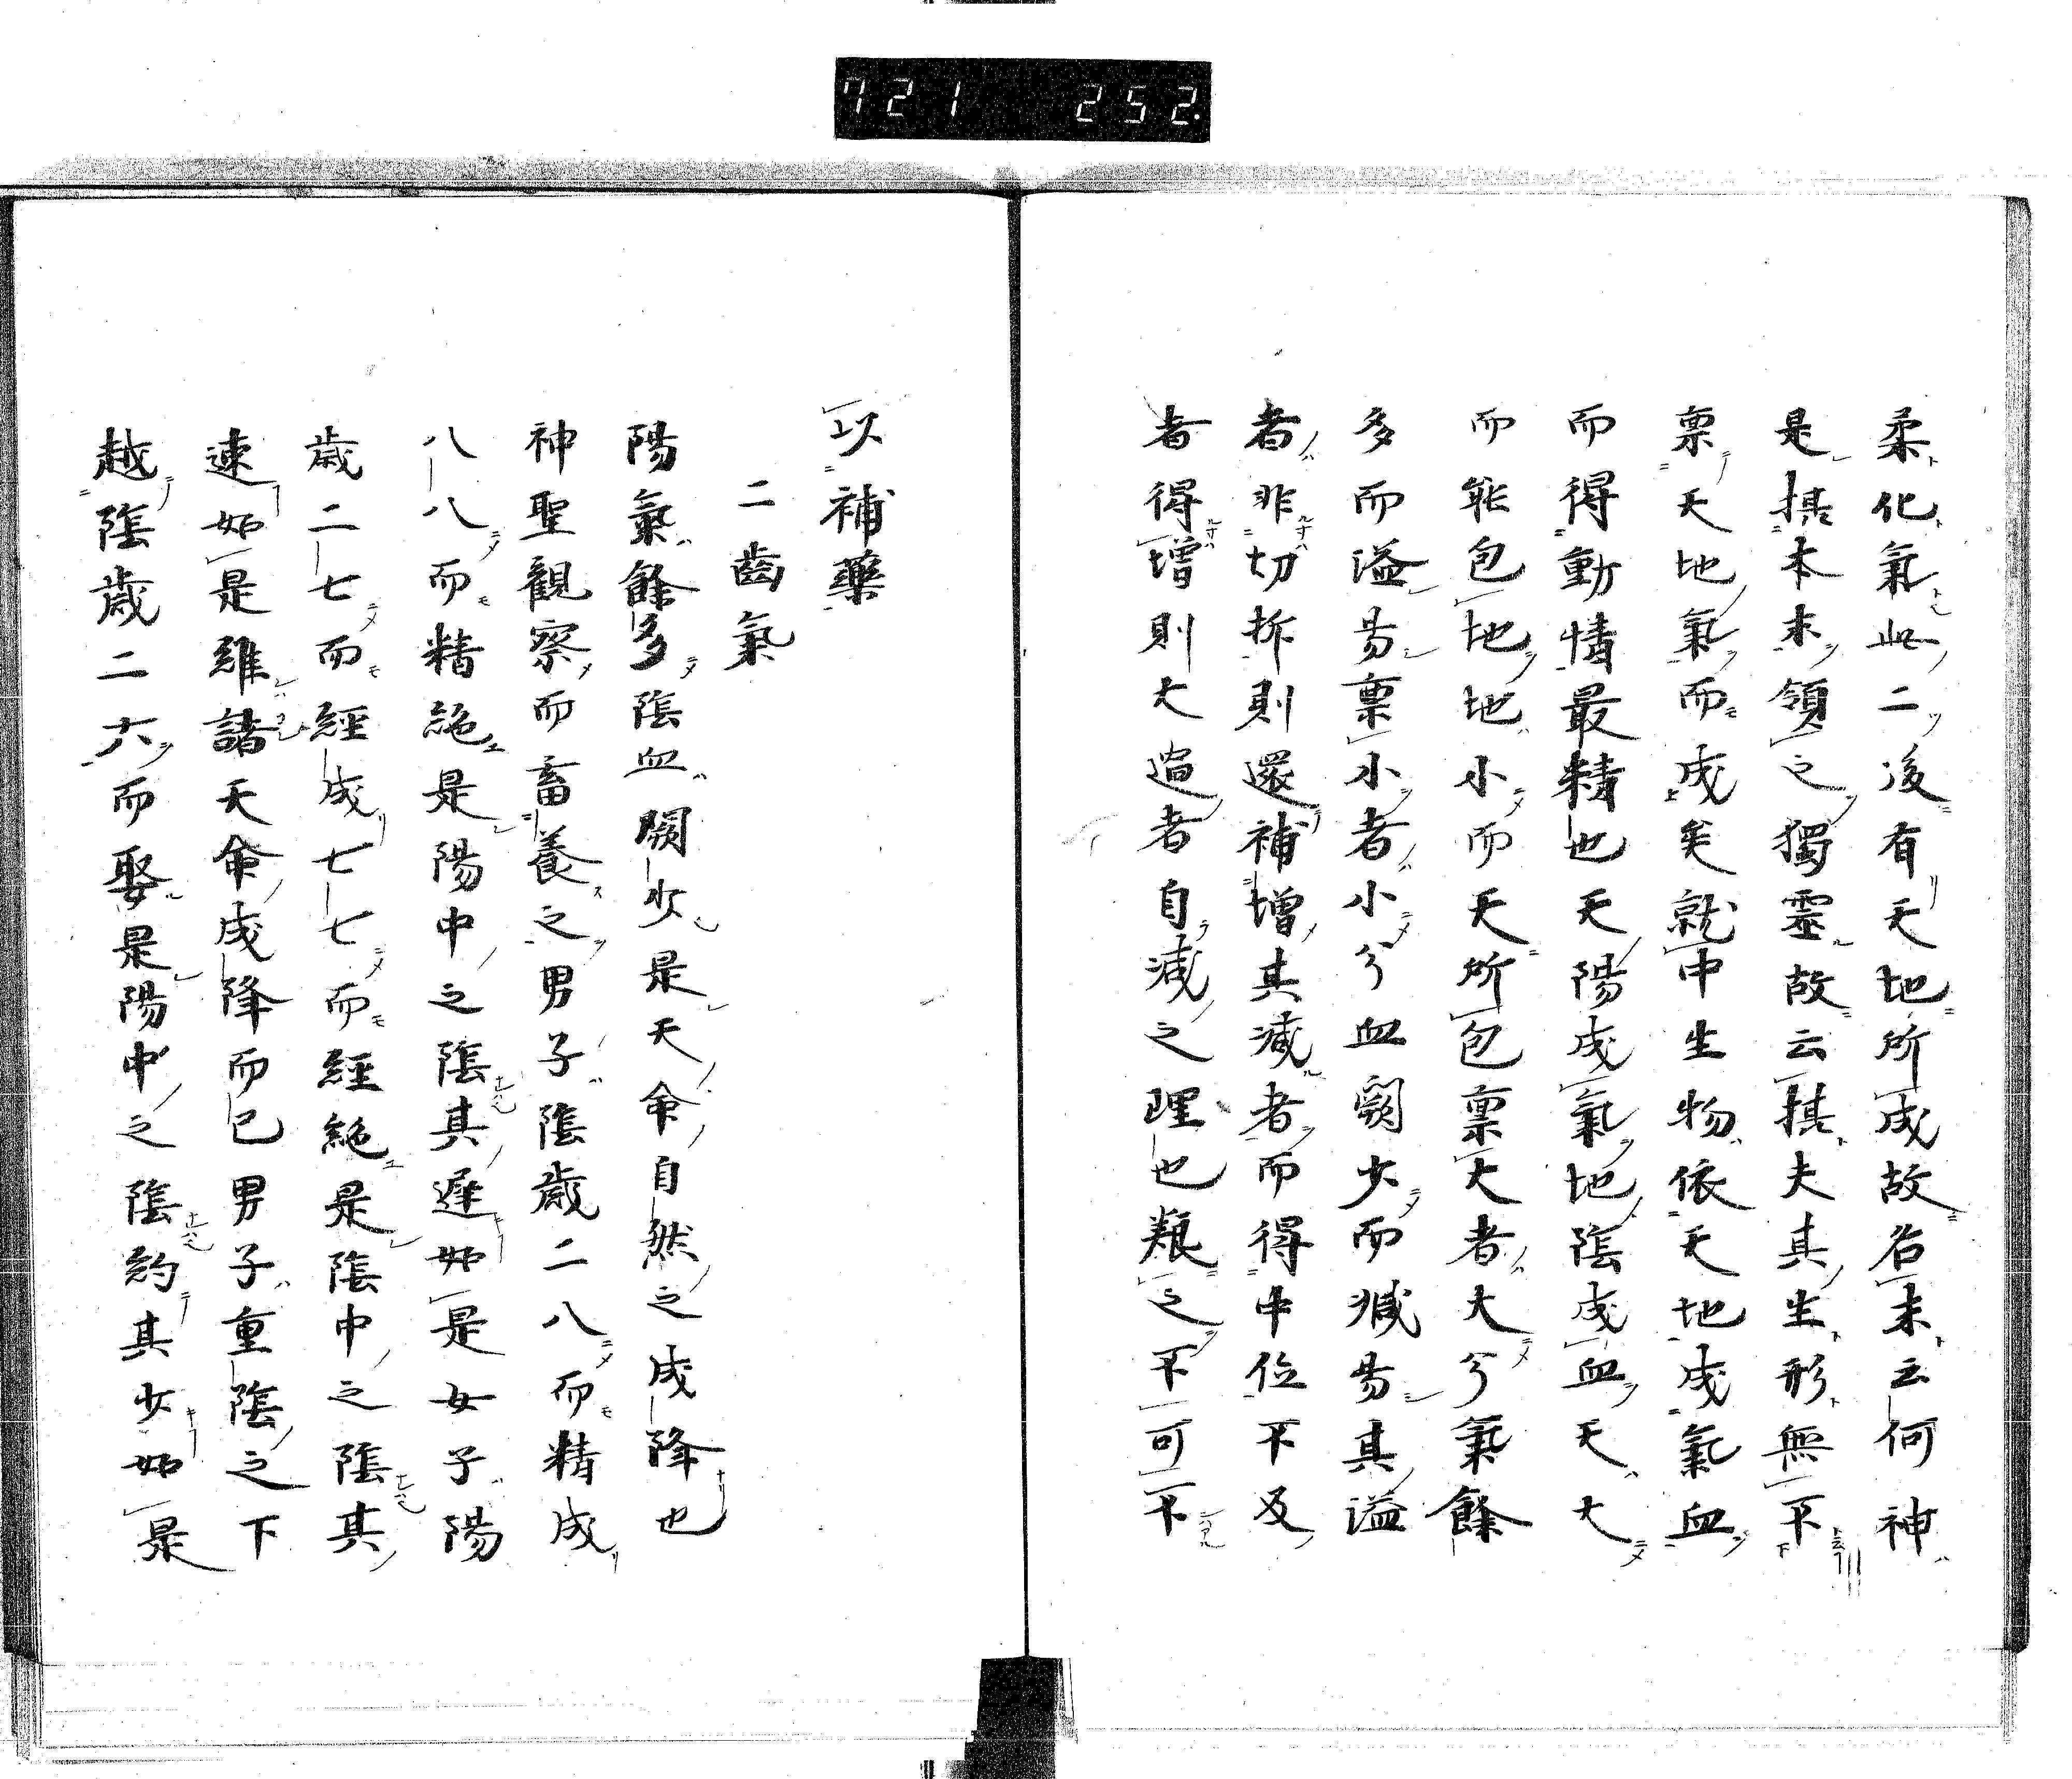 721 252
柔化氣此二後有天地所成故名未云何神
是撗本末領之獨靈故云撗夫其生形無不
禀天地氣而成矣就中生物依天地成氣血
而得動情最精也天陽成氣地陰成血天大
而能包地地小而天所包禀大者大兮氣餘
多而溢易禀小者小兮血闕少而減易其溢
者非切拆則還補增其減者而得中位不及
者得增則大過者自減之理也粮之不可不
以補藥
二齒氣
陽氣餘多陰血闕少是天命自然之成降也
神聖觀察而畜養之男子陰歲二八而精成
八八而精絶是陽中之陰其遲如是女子陽
歲二七而經成七七而經絶是陰中之陰其
速如是雖諸天命成降而已男子重陰之下
越陰歲二六而娶是陽中之陰約其少如是